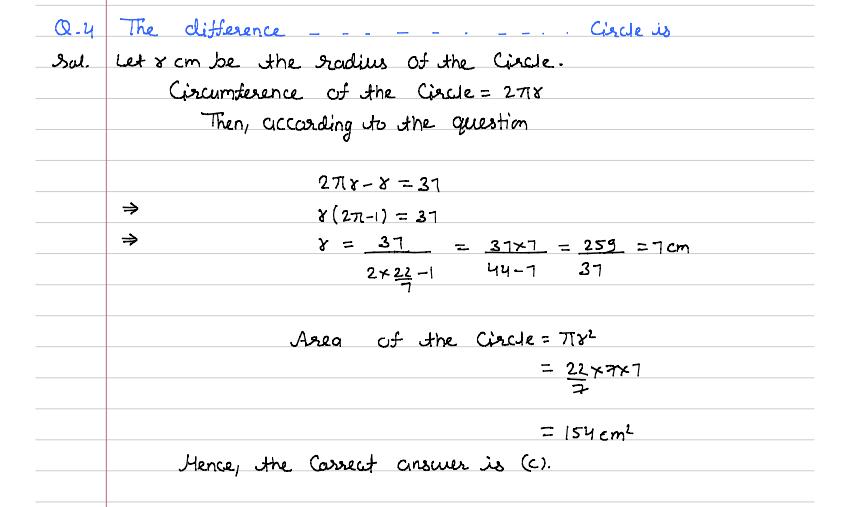 Q.4 The difference - - - - - . - - . . Circle is
Sol. Let r cm be the radius of the Circle.
Circumference of the Circle = 2πr
Then, according to the question
2πr - r = 37
⇒ r(2π-1) = 37
⇒ r = 37/(2×22/7 -1) = 37×7/(44-7) = 259/37 = 7cm
Area of the Circle = πr²
= 22/7 × 7×7
= 154 cm²
Hence, the Correct answer is (c).